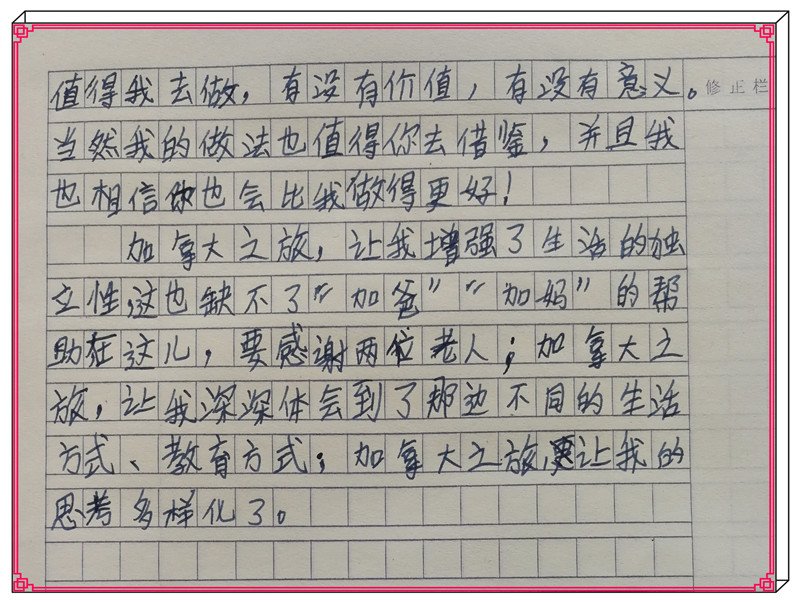 值得我去做，有没有价值，有没有意义。
修正栏
当然我的做法也值得你去借鉴，并且我
也相信你也会比我做得更好！
加拿大之旅，让我增强了生活的独
立性，这也缺不了“加爸”“加妈”的帮
助在这儿，要感谢两位老人；加拿大之
旅，让我深深体会到了那边不同的生活
方式、教育方式；加拿大之旅，更让我的
思考多样化了。